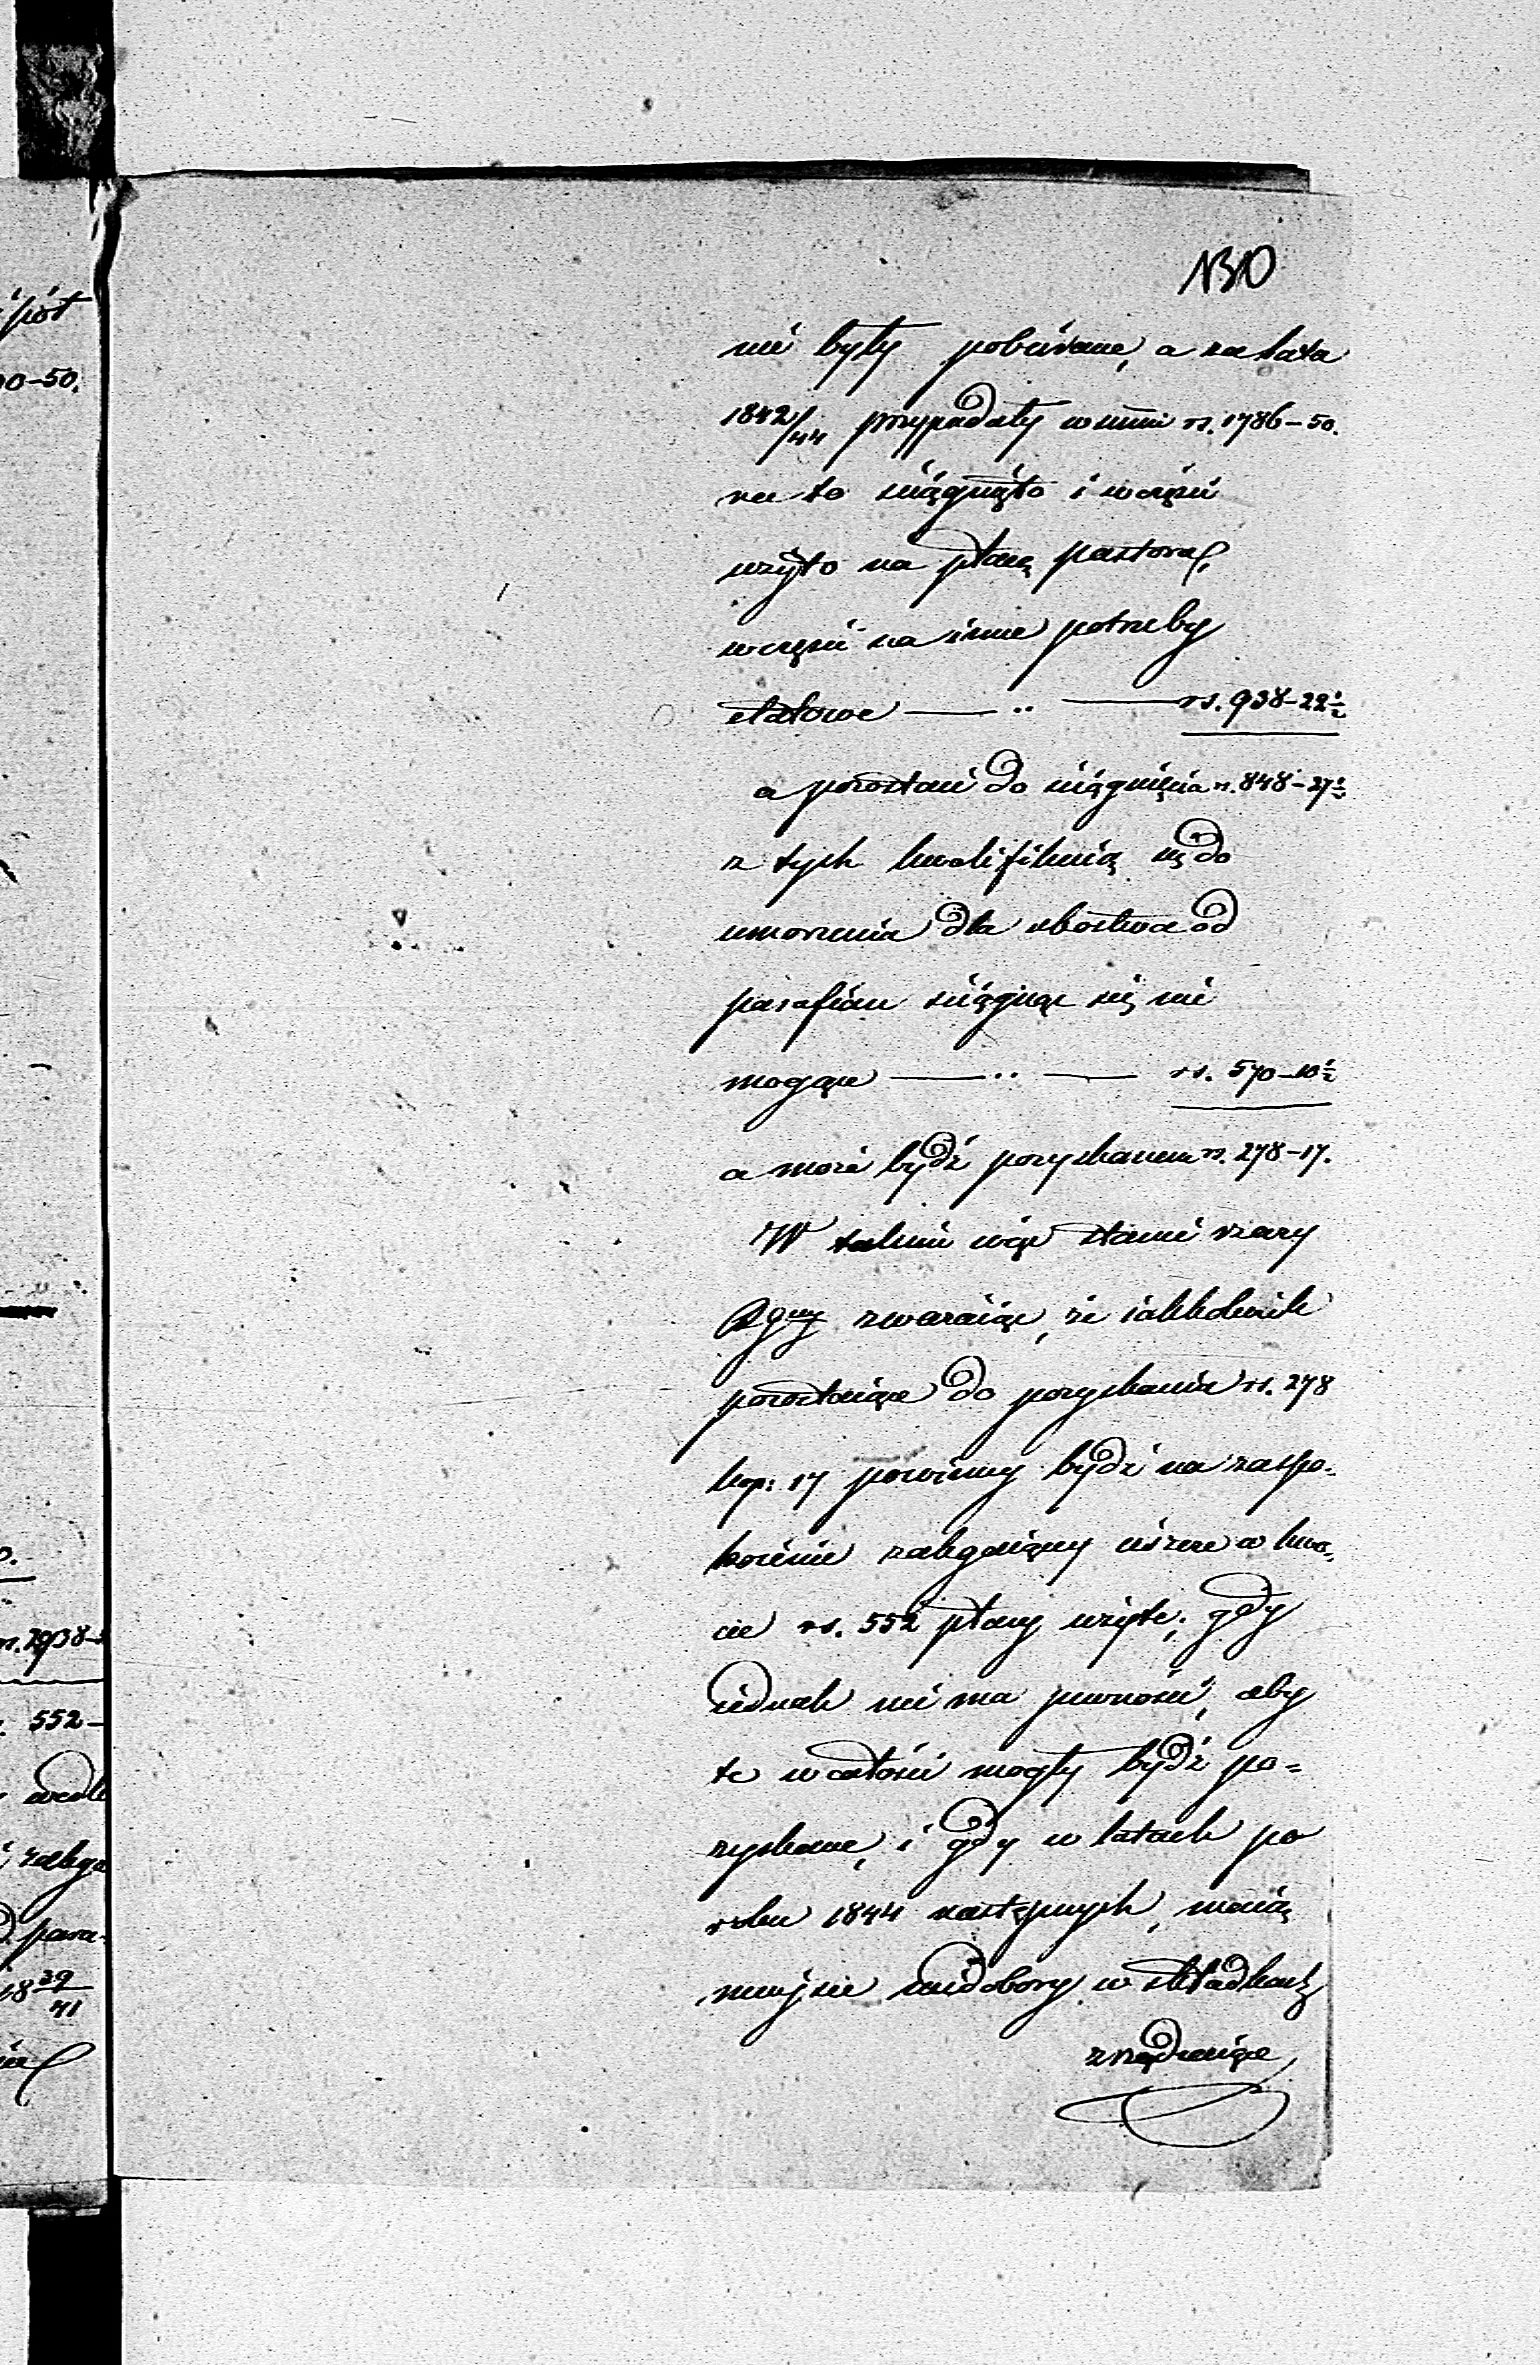 130
nie były pobierane, a za lata
1842/44 przypadały w sumie rs. 1786-50.
na to ściągnięto i w części
użyto na płacę pastora,
w części na inne potrzeby
etatowe — .. — rs. 938-22½
a pozostaie do ściągnięcia rs. 848-27½
z tych kwalifikuią się do
umorzenia dla ubostwa od
parafian ściągnąć się nie
mogące — .. — rs. 570-10½
a może bydź pozyskanem rs. 278-17.
W takim więc stanie rzeczy
zważaiąc, że iakkolwiek
pozostaiące do pozyskania rs. 278
kop: 17 powinny bydź na zaspo-
koienie zalegaiącey ieszcze w kwo-
cie rs. 552 płacy użyte; gdy
iednak nie ma pewności, aby
te w całości mogły bydź po=
zyskane, i gdy w latach po
roku 1844 następnych, maią
mieysce niedobory w składkach
zrządzaiące
iśót
00-50.
rs. 2938-
552-
wedle
zalega
para-
18 39/41